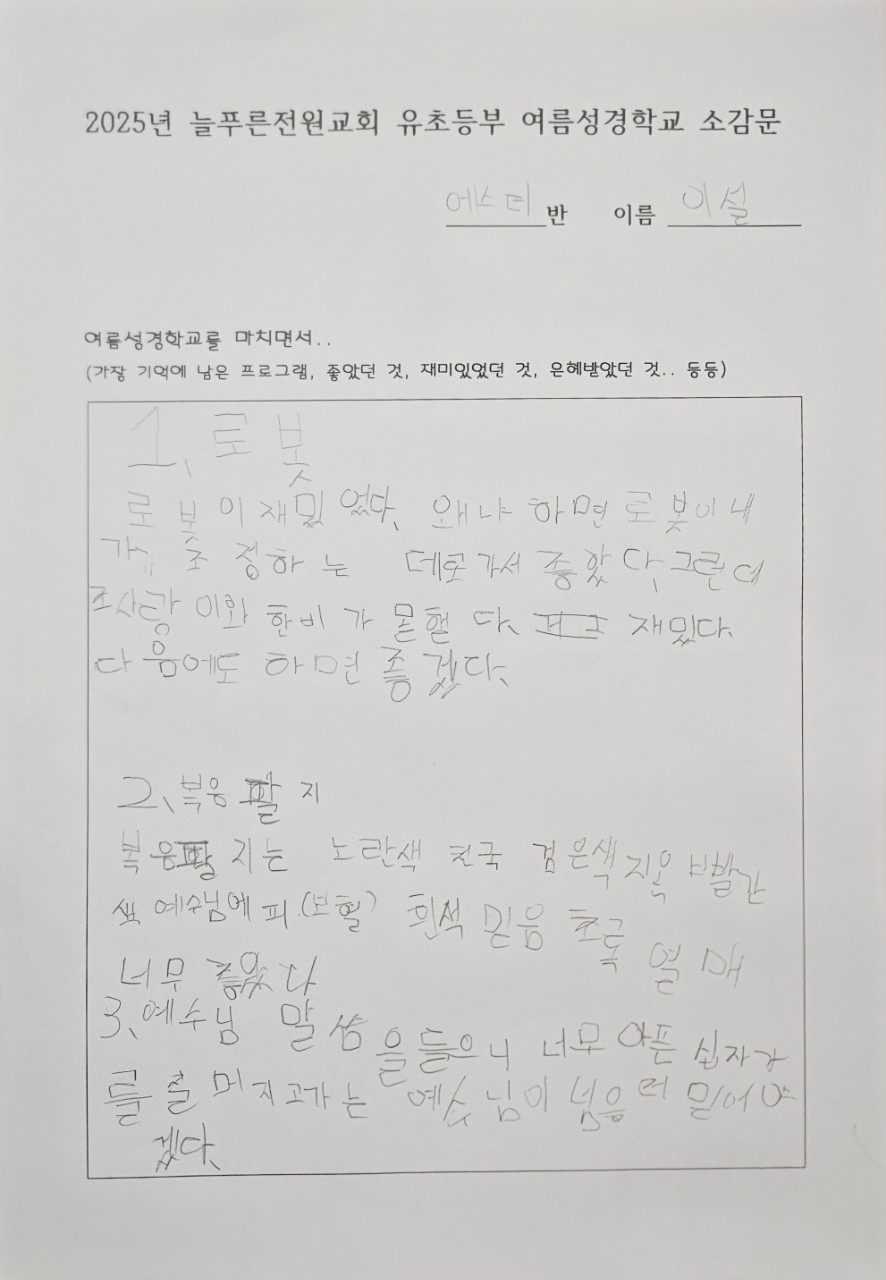 2025년 늘푸른전원교회 유초등부 여름성경학교 소감문
에스더 반 이름 이설
여름성경학교를 마치면서..
(가장 기억에 남은 프로그램, 좋았던 것, 재미있었던 것, 은혜받았던 것.. 등등)
1. 로봇
로봇이 재밌었다. 왜냐하면 로봇이 내
가 조정하는 데로 가서 좋았다. 그런데
조사랑 이와 한비가 못했다. 재밌다.
다음에도 하면 좋겠다.
2. 복음팔지
복음팔지는 노란색 천국 검은색 지옥 빨간
색 예수님에 피(보혈) 흰색 믿음 초록 열매
너무 좋았다
3. 예수님 말씀을 들으니 너무 아픈 십자가
를 지고가는 예수님이 믿어야
겠다.